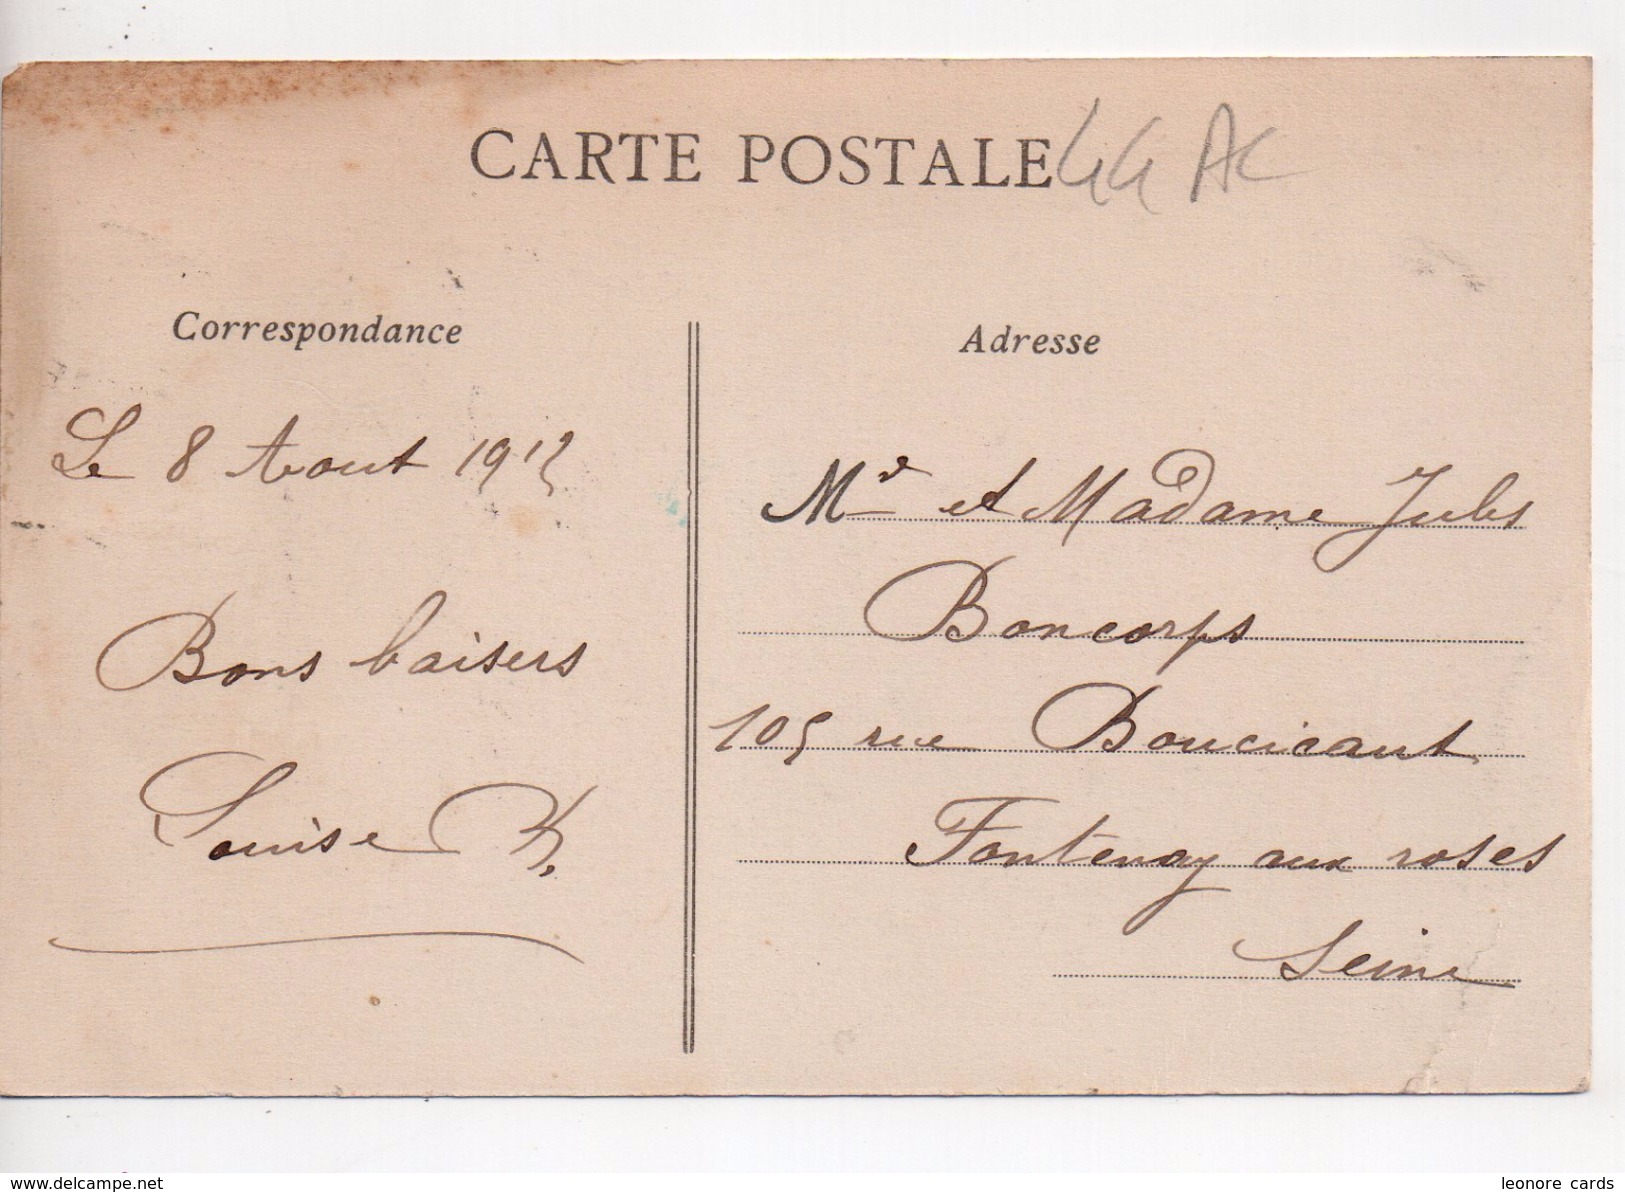 CARTE POSTALE 44 AC
Correspondance
Le 8 Aout 191
Bons baisers
Louise
Adresse
Mr et Madame Jules
Boncorps
105 rue Boucicaut
Fontenay aux roses
Seine
www.delcampe.net
leonore cards